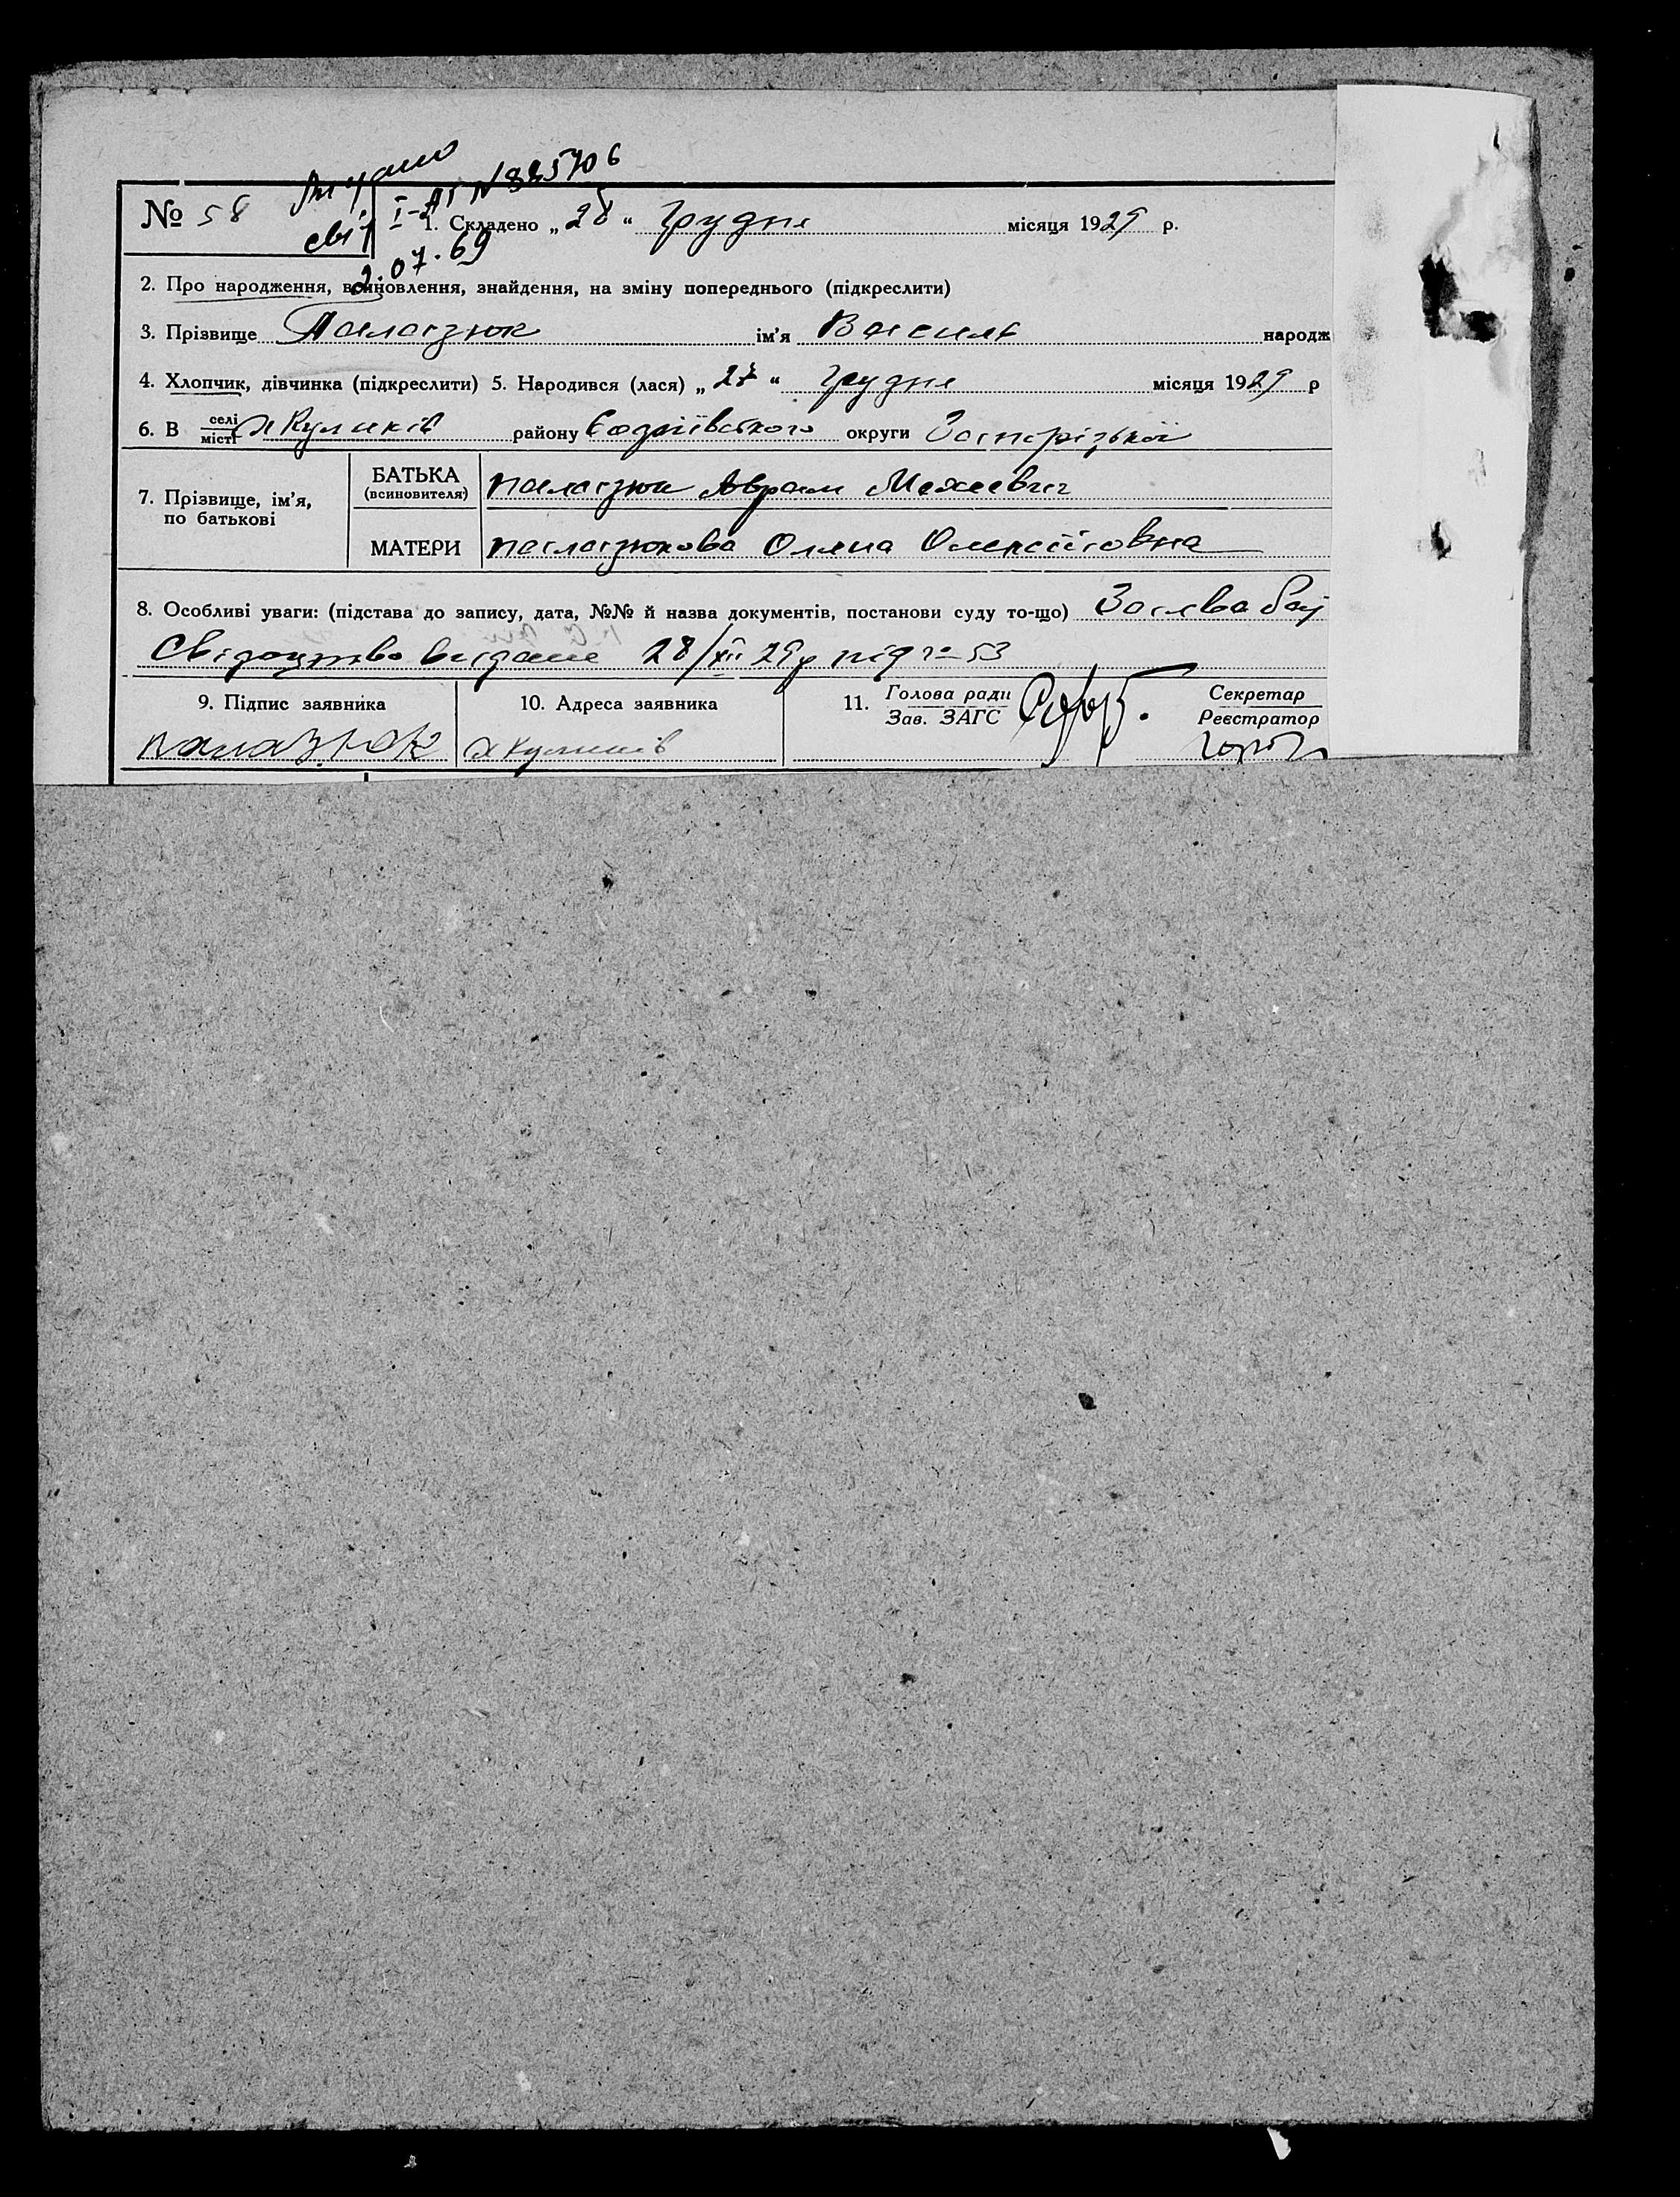 Видано
свід. I-АП №885706
2.07.69
№ 58
1. Складено „28“ Грудня місяця 1929 р.
2. Про народження, всиновлення, знайдення, на зміну попереднього (підкреслити)
3. Прізвище Палазюк ім’я Василь народж
4. Хлопчик, дівчинка (підкреслити) 5. Народився (лася) „27“ Грудня місяця 1929 р
6. В селі місті х Куликів району округи Запорізької
7. Прізвище, ім’я, по батькові
БАТЬКА (всиновителя) Палазюк Аврам
МАТЕРИ Палазюкова Оляна Олексіїовна
8. Особливі уваги: (підстава до запису, дата, №№ й назва документів, постанови суду то-що) Заява бат
Свідоцтво видане 28/XII 29р під № 53
9. Підпис заявника 10. Адреса заявника 11. Голова ради Зав. ЗАГС Секретар Реєстратор
Палазюк х Куликів